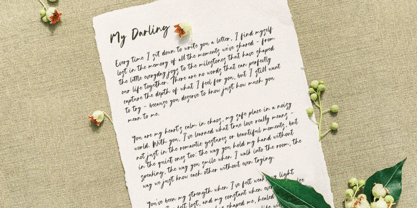 My Darling
Every time I sit down to write you a letter, I find myself
lost in the memory of all the moments we've shared - from
the little everyday joys to the milestones that have shaped
our life together. There are no words that can perfectly
capture the depth of what I feel for you, but I still want
to try - because you deserve to know just how much you
mean to me.
You are my heart's calm in chaos, my safe place in a noisy
world. With you, I've learned what true love really means -
not just in the romantic gestures or beautiful moments, but
in the quiet ones too: the way you hold my hand without
speaking, the way you smile when I walk into the room, the
way we just know each other without even trying.
You've been my strength when I've felt weak, light
lost, and my constant when
shaped me, healed